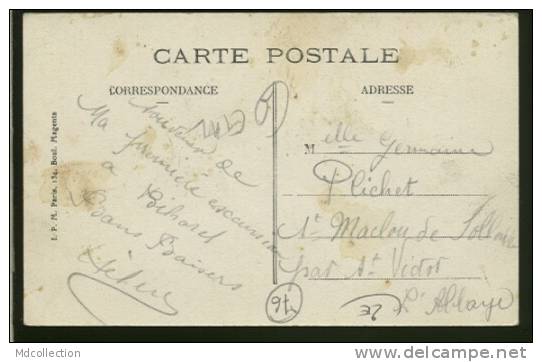 CARTE POSTALE
CORRESPONDANCE
ADRESSE
I. P. M. Paris, 134, Boul. Magenta
Souvenir de
Ma première excursion
à Bihorel
Bons Baisers
Hélène
Melle Germaine
Plichet
St Maclou de Folleville
par St Victor
L'Abbaye
76
MDcollection
http://www.delcampe.net